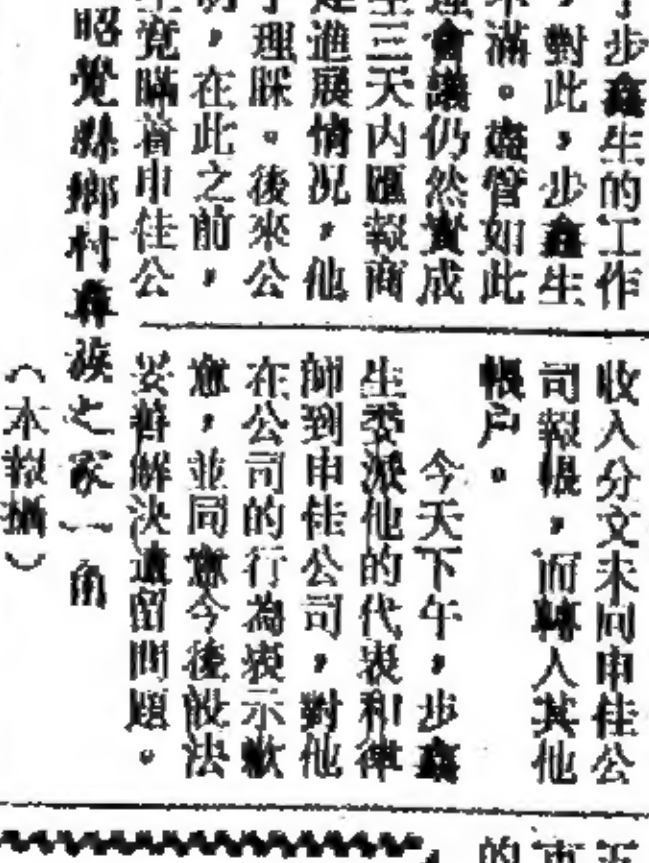 了步鑫生的工作
，對此，步鑫生
不滿。儘管如此
會議仍然贊成
三天內匯報商
進展情況，他
理睬。後來公
，在此之前，
竟瞞着申佳公
收入分文未向申佳公
司報帳，而轉入其他
帳戶。
今天下午，步鑫
生委派他的代表和律
師到申佳公司，對他
在公司的行為表示歉
意，並同意今後設法
妥善解決遺留問題。
昭覺縣鄉村彝族之家一角
（本報攝）